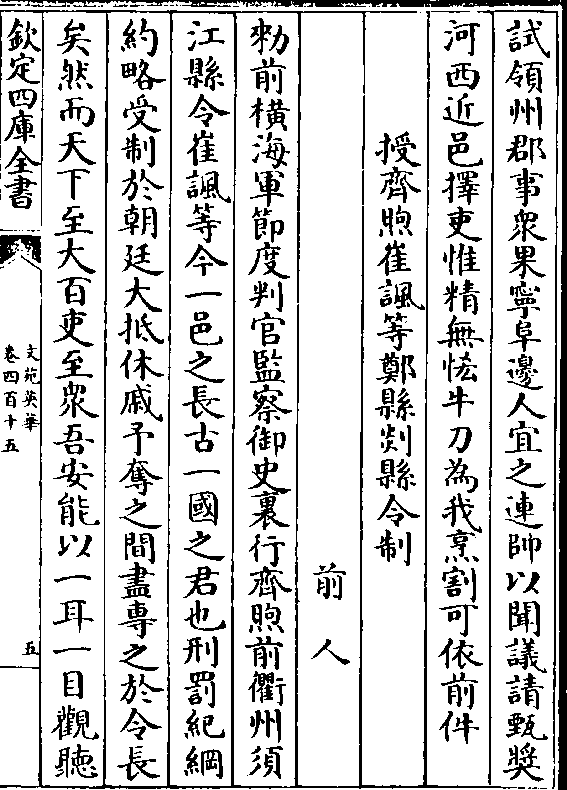 試領州郡事衆果寧阜邊人宜之連帥以聞議請甄奬
河西近邑擇吏惟精無恡牛刀為我烹割可依前件
授齊煦崔諷等鄭縣剡縣令制
前人
勑前横海軍節度判官監察御史裏行齊煦前衢州須
江縣令崔諷等今一邑之長古一國之君也刑罰紀綱
約略受制於朝廷大抵休戚予奪之間盡專之於令長
矣然而天下至大百吏至衆吾安能以一耳一目觀聽
欽定四庫全書
文苑英華
卷四百十五
五